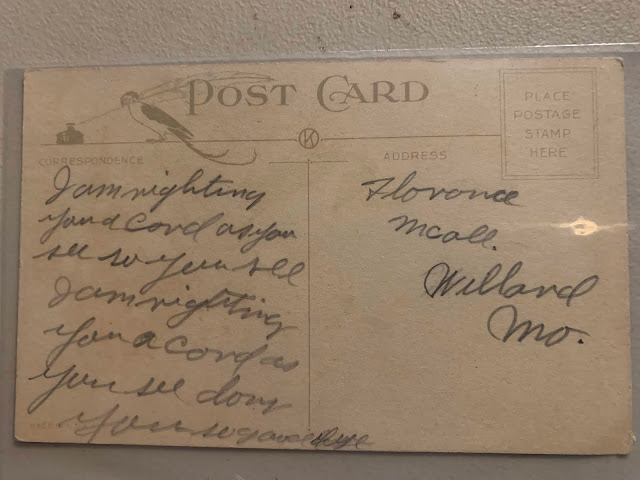 POST CARD
PLACE
POSTAGE
STAMP
HERE
CORRESPONDENCE
ADDRESS
I am righting
you a cord as you
see so you see
I am righting
you a cord as
you see dony
you so good bye
Florance
Mcall.
Willard
Mo.